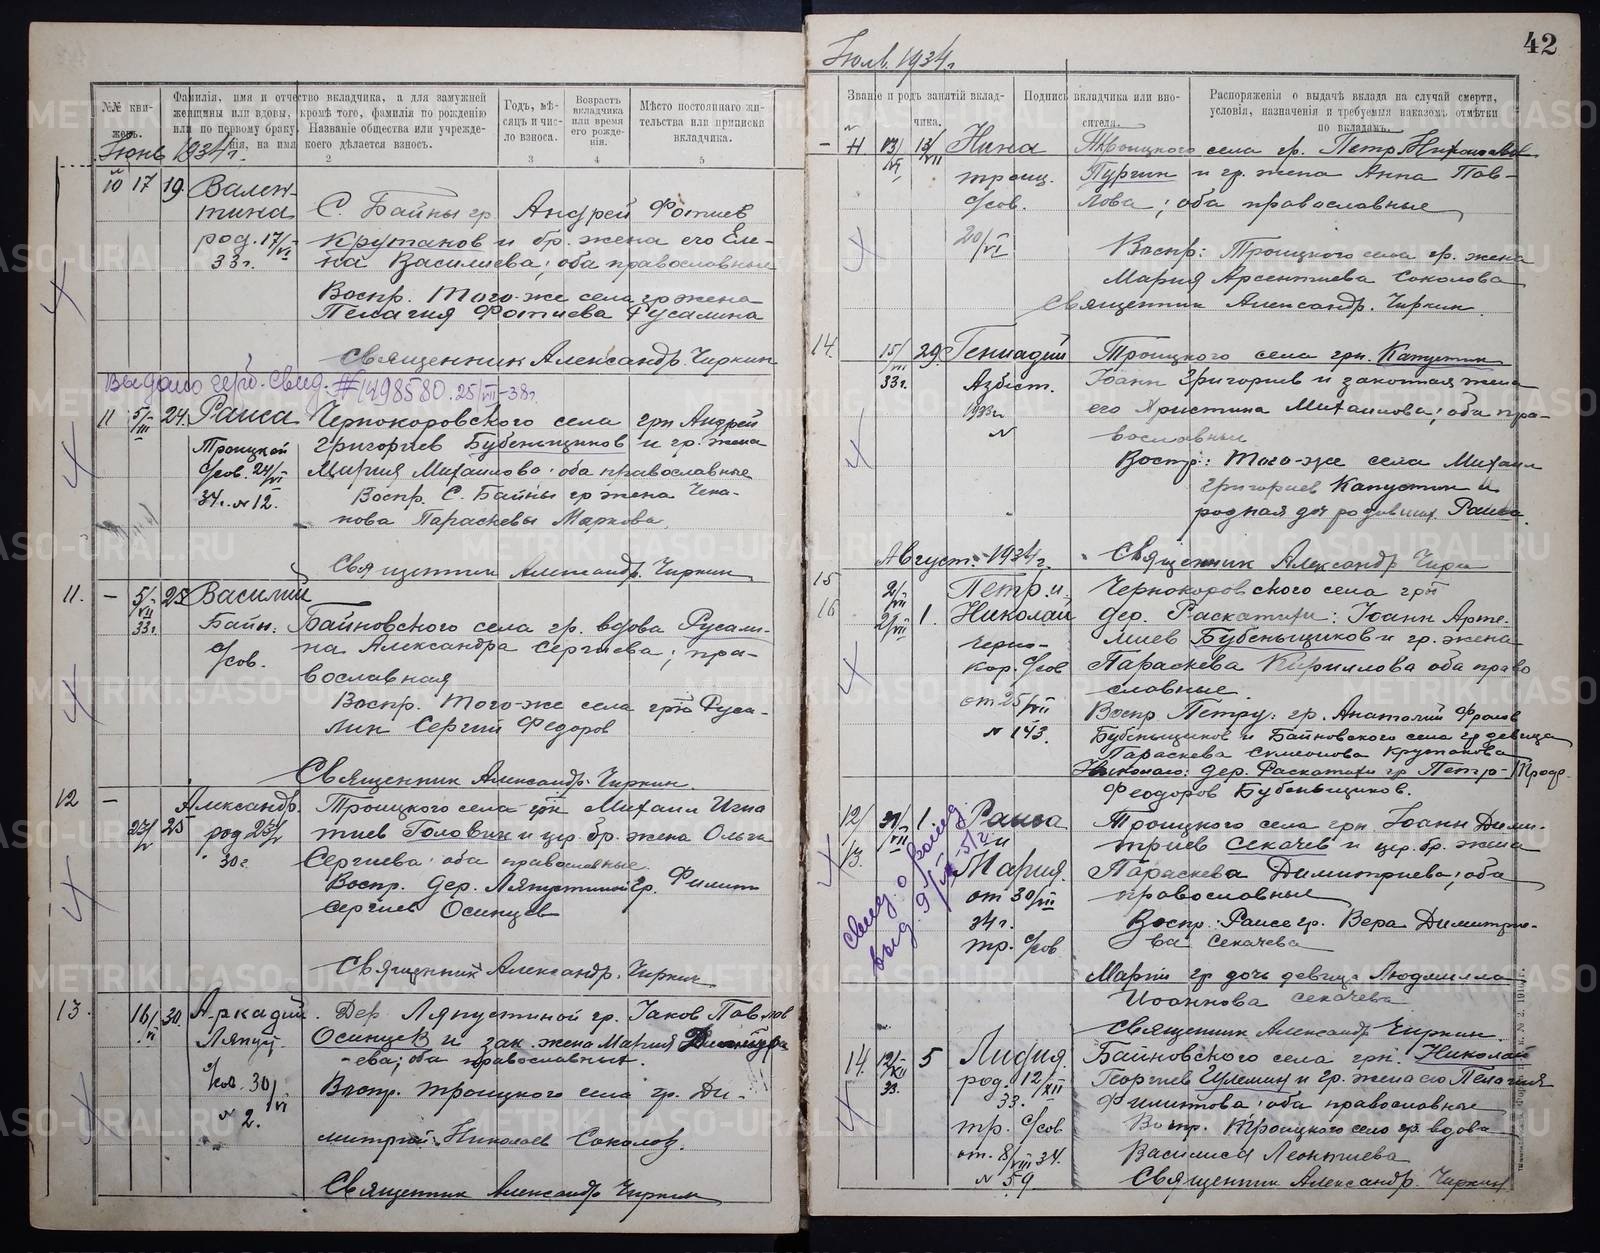 №№ кви-
жекъ.
Фамилія, имя и отчество вкладчика, а для замужней
женщины или вдовы, кромѣ того, фамилія по рожденію
или по первому браку. Названіе общества или учрежде-
нія, на имя коего дѣлается взносъ.
2
Годъ, мѣ-
сяцъ и чис-
ло взноса.
3
Возрастъ
вкладчика
или время
его рожде-
нія.
4
Мѣсто постояннаго жи-
тельства или приписки
вкладчика.
5
Іюнь 1934 г.
10 17 19. Вален-
тина
род. 17/VI
33 г.
С. Байны гр. Андрей Фотиев
Крутаков и бр. жена его Еле-
на Василиева; оба православные
Воспр. Того-же села гр жена
Пелагия Фотиева Русалина
Священник Александр Чиркин
Выдано герб. свид. # 1498580. 25/VII-38 г.
11 5/III 24. Раиса
Троицкой
с/сов. 24/VI
34 г. № 12.
Чернокоровского села грн Андрей
Григориев Бубеньщиков и гр. жена
Мария Михаилова. оба православные
Воспр. С. Байны гр жена Чека-
нова Параскевы Маркова
Священник Александр. Чиркин
11. — 5/VII 33 г. 25 Василий
Байн.
с/сов.
Байновского села гр. вдова Русали-
на Александра Сергиева; пра-
вославная
Воспр. Того-же села грн Руса-
лин Сергий Федоров
Священник Александр. Чиркин.
12 — 23/V 25 Александр.
род 23/V
30 г.
Троицкого села грн Михаил Игна
тиев Голович и цер. бр. жена Ольга
Сергиева оба православные
Воспр. дер. Ляпустиной гр. Филип
Сергиев Осинцев
Священник Александр. Чиркин
13. 16/VI 30. Аркадий.
Ляпуст.
с/сов. 30/VI
№ 2.
Дер Ляпустиной гр. Иаков Павлов
Осинцев и зак. жена Мария Димитри
-ева; оба православные.
Воспр. Троицкого села гр. Ди-
митрий Николаев Соколов.
Священник Александр Чиркин
42
Іюль 1934 г.
Званіе и родъ занятій вклад-
чика.
Подпись вкладчика или вно-
сителя.
Распоряженія о выдачѣ вклада на случай смерти,
условія, назначенія и требуемыя наказомъ отмѣтки
по вкладамъ.
— 13/VI 13/VII Нина
троиц.
с/сов.
20/VI
Троицкого села гр. Петр
Пургин и гр. жена Анна Пав-
лова; оба православные
Воспр: Троицкого села гр. жена
Мария Арсентиева Соколова
Священник Александр. Чиркин.
14. 15/VII 33 г. 29 Геннадий
Азбест.
1933 г.
№
Троицкого села грн. Капустин
Иоанн Григориев и законная жена
его Христина Михаилова; оба пра-
вославные
Воспр: Того-же села Михаил
Григориев Капустин и
родная доч родивших Раиса.
Священник Александр Чирк
Август. 1934 г.
15 2/VII Петр и
16 2/VII 1. Николай
Черно-
кор. с/сов
от 25/VII
№ 143.
Чернокоровского села грн
дер. Раскатихи: Иоанн Арте-
миев Бубеньщиков и гр. жена
Параскева Кириллова оба право
славные.
Воспр Петру: гр. Анатолий Фролов
Бубеньщиков и Байновского села гр девица
Параскева Симеонова Крутакова
Николаю: дер. Раскатихи гр Петро-
Феодоров Бубеньщиков.
12/13. 31/VII 1. Раиса
и
Мария.
от 30/VII
34 г.
тр. с/сов
Свид. о рожд
выд. 9/VI-51 г
Троицкого села грн. Иоанн Дими-
триев Секачев и цер. бр. жена
Параскева Димитриева; оба
православные
Воспр: Раисе гр. Вера Димитрие-
ва Секачева
Марии гр дочь девица Людмилла
Иоаннова Секачева
Священник Александр Чиркин.
14. 12/XII 33. 5 Лидия.
род. 12/XII
33.
тр. с/сов
от. 8/VIII 34.
№ 59
Байновского села грн. Николай
Георгиев Шлемин и гр. жена его Пелагия
Филиппова; оба православные
Воспр. Троицкого село гр. вдова
Василиса Леонтиева
Священник Александр. Чиркин
METRIKI.GASO-URAL.RU